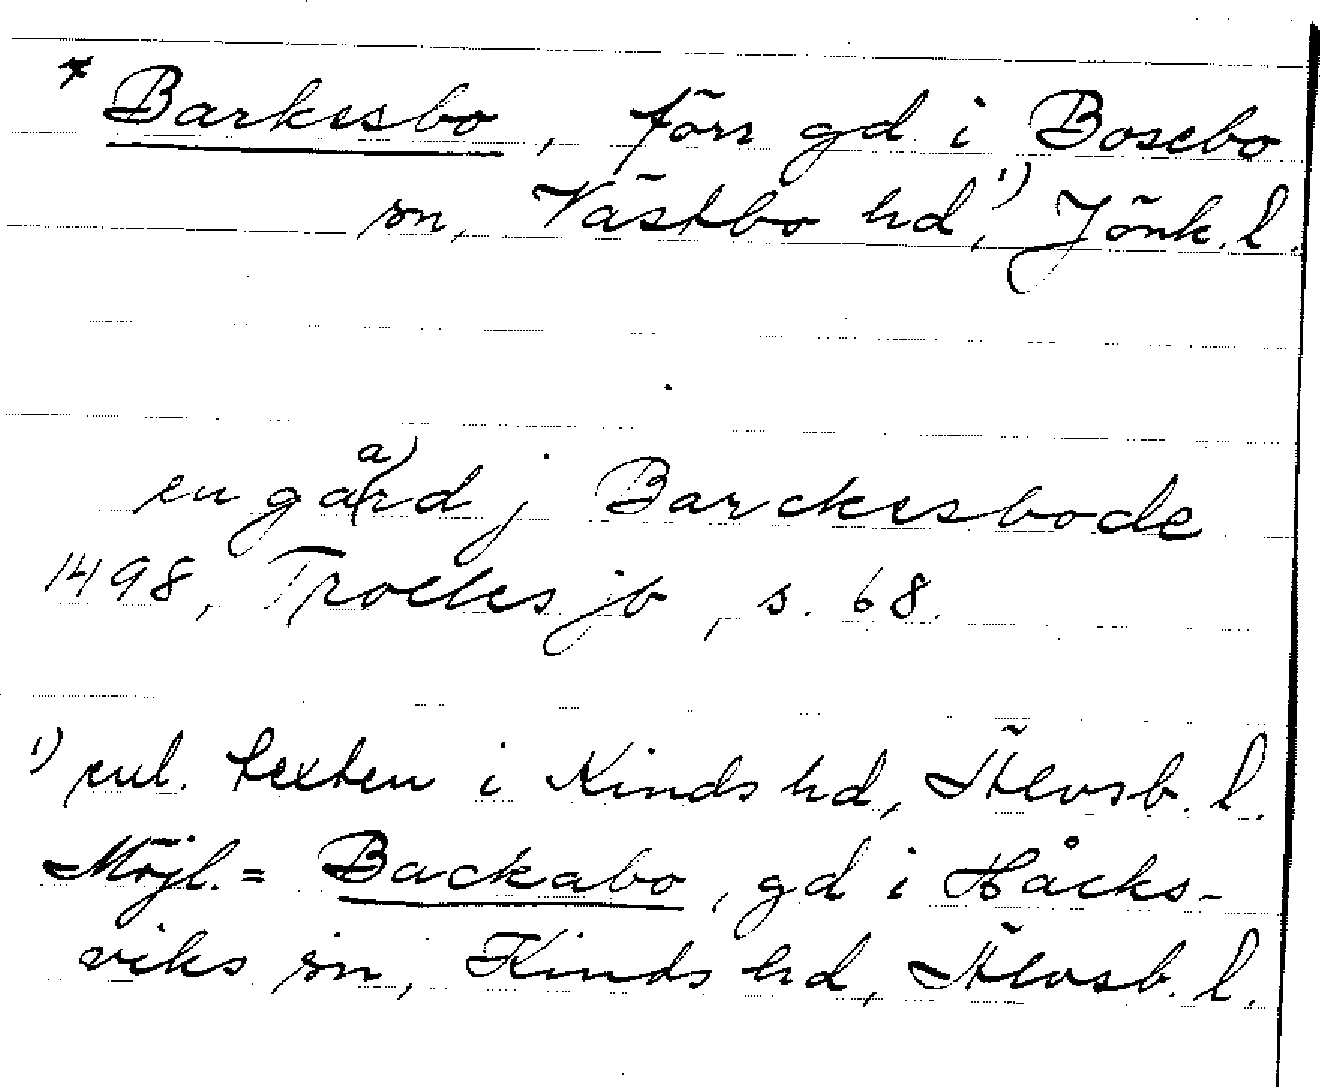 * Barkesbo, förr gd i Bosebo
sn, Västbo hd,¹) Jönk. l.
en gård a) j Barckesbode
1498, Trolles jb, s. 68.
¹) enl. texten i Kinds hd, Älvsb. l.
Möjl. = Backabo, gd i Håcks-
viks sn, Kinds hd, Älvsb. l.